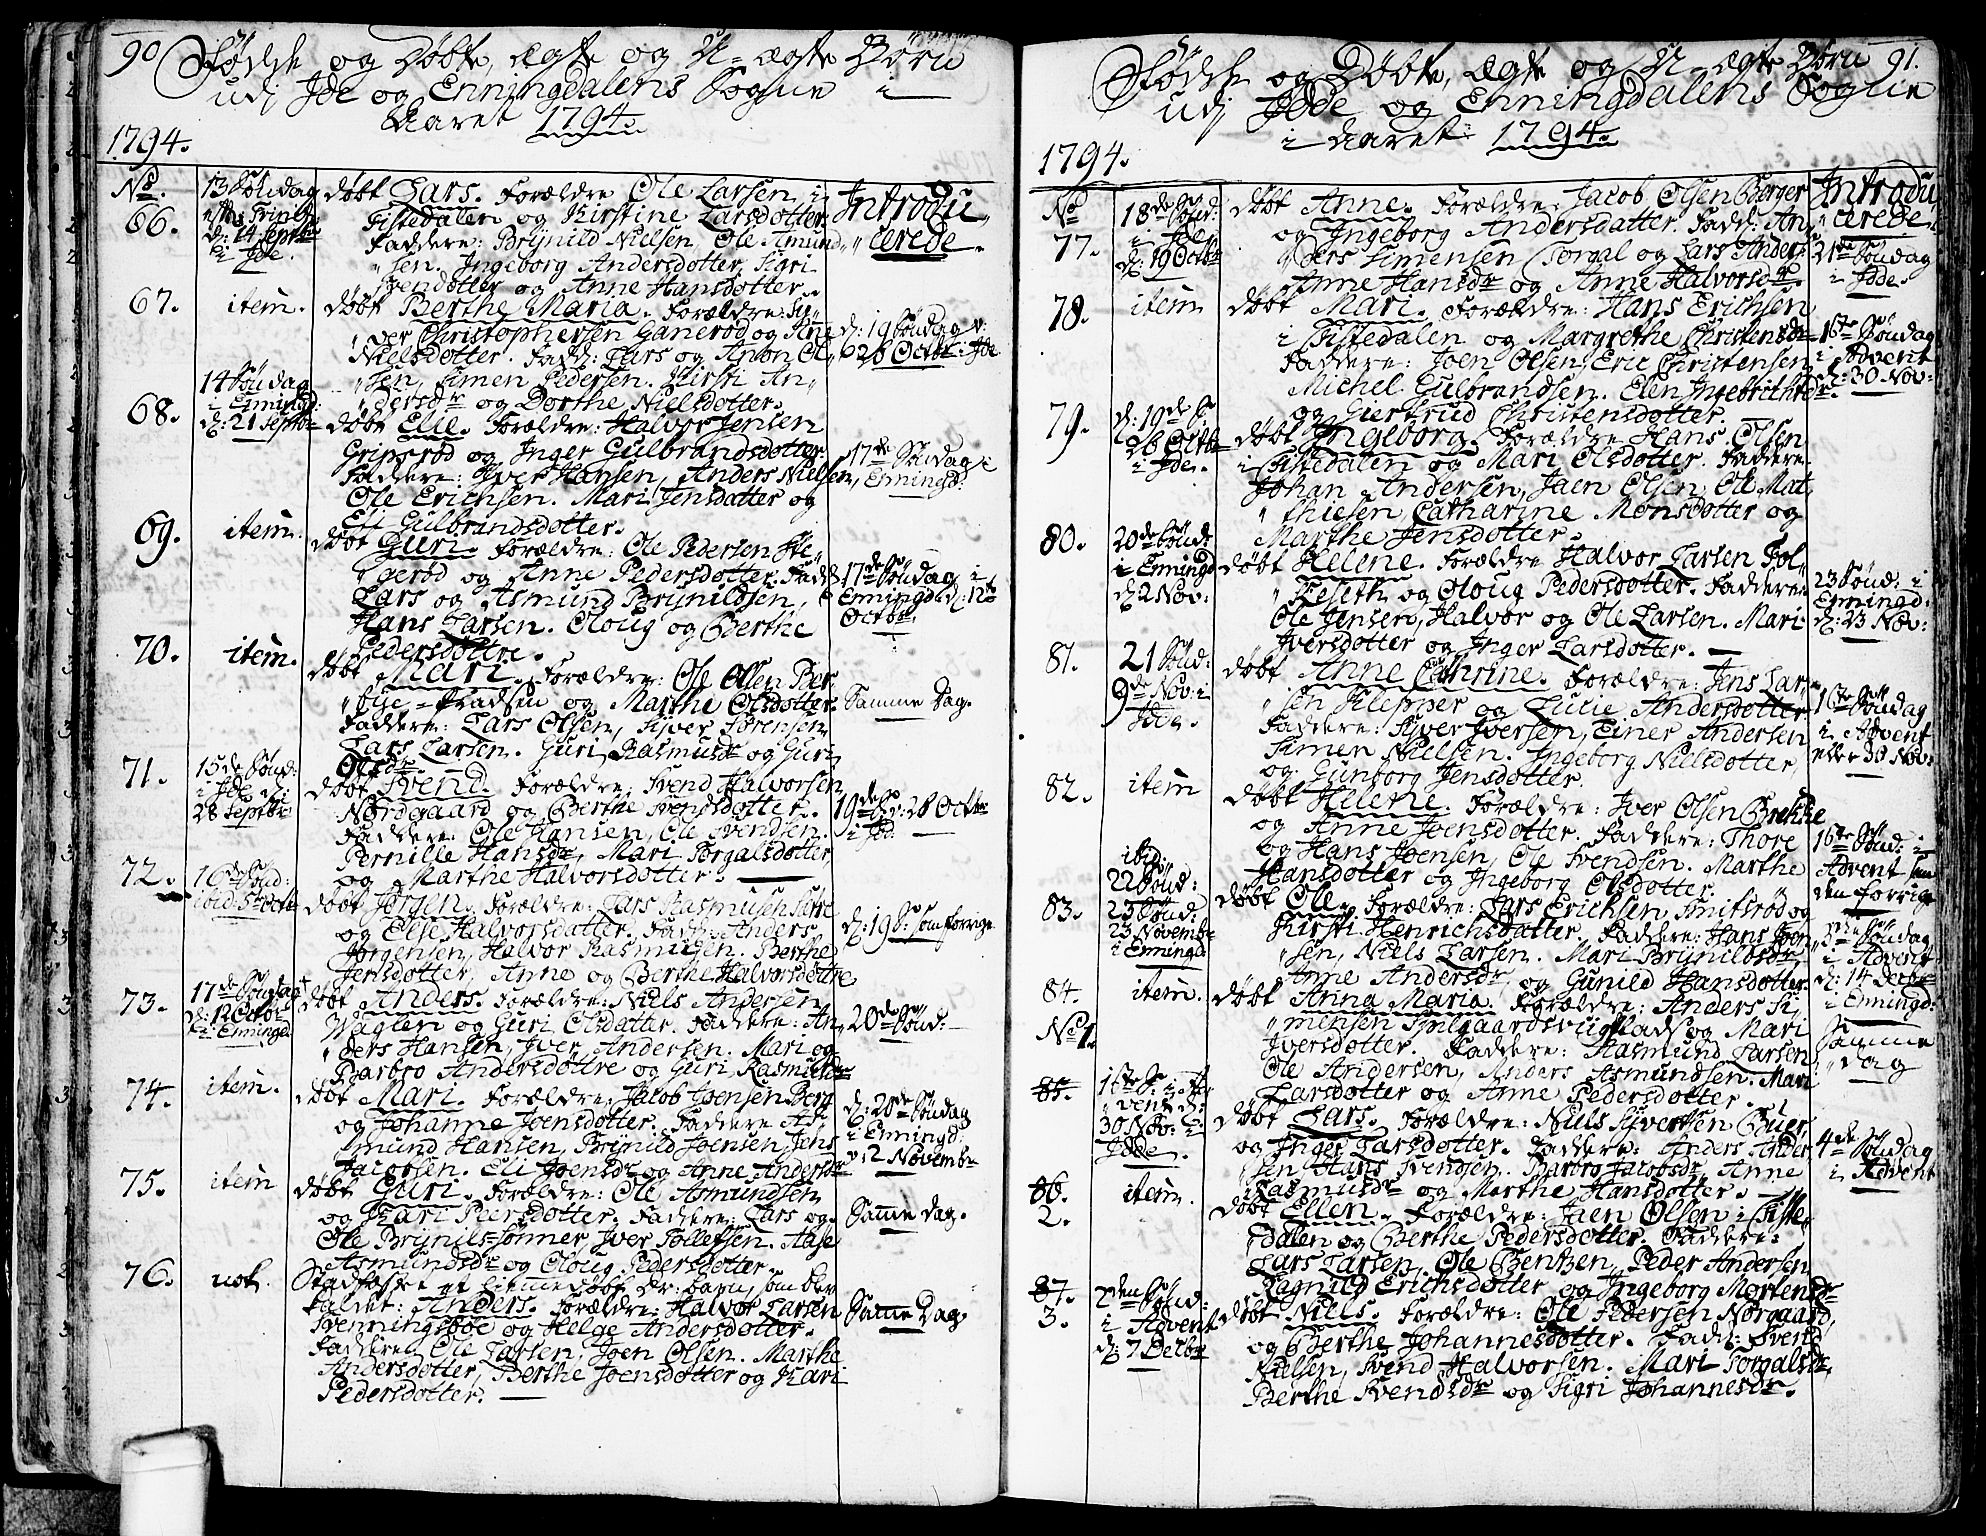 90 Fødde og Døbte, ægte og U-ægte Børn
udj Jde og Enningdalens Sogne i
Aaret 1794.
1794.
No.
Introdu
cerede.
66.
13 Søndag
efter Trinit:
d: 14 Septbr
i Jde.
døbt Lars. Forældre Ole Larsen i
Tistedalen og Kirstine Larsdotter.
Faddere: Brÿnild Nielsen, Ole Amund
sen. Ingeborg Andersdotter, Sigri
Svendotter og Anne Hansdotter.
67.
item.
døbt Berthe Maria. Forældre:
der Christophersen Ganerød og Anne
Nielsdotter. Fadd: Lars og Ol
sen, Simen Pedersen. Kirsti An
dersdr og Dorthe Nielsdotter.
d: 19 Søndag v:
26 Octbr: Jde
68.
14 Søndag
i Enningd:
d: 21 Septbr
døbt Elie. Forældre: Halvor Jensen
Gripsrød og Inger Gulbrandsdotter.
Faddere: Iver Hansen, Anders Nielsen,
Ole Erichsen. Mari Jensdatter og
Eli Gulbrandsdotter.
17de Søndag i
Enningd:
69.
item.
døbt Guri. Forældre: Ole Pedersen Ste
gerød og Anne Pedersdotter. Fadd:
Lars og Asmund Brÿnildsen,
Hans Larsen. Oloug og Berthe
Pedersdottre.
17de Søndag i
Enningd: d: 12te
Octbr.
70.
item.
døbt Mari. Forældre: Ole Olsen Ber
bye-Pradsen og Marthe Olsdotter.
Faddere: Lars Olsen, Siver Sørensen
Lars Larsen. Guri Rasmusdr og Guri
Olesdr
Samme Dag.
71.
15de Sønd:
i Jde d:
28 Septbr:
døbt Svend. Forældre, Svend Halvorsen
Nordgaard og Berthe Svendsdotter.
Faddere: Ole Hansen, Ole Svendsen.
Pernille Hansdr, Mari Torgalsdotter,
og Marthe Halvorsdotter.
19de S: v: 26 Octbr
i Jd:
72.
16de Sønd:
ibid. 5 Octbr
døbt Jørgen. Forældre: Lars Rasmusen
og Else Halvorsdatter. Fadd: Anders
Jørgensen, Halvor Rasmusen. Berthe
Jensdotter, Anne og Berthe Halvorsdøttre
d: 19 S: som forrige
73.
17de Søndag
d: 12 Octbr
i Enningd:
døbt Anders. Forældre: Niels Andersen
Wagten og Guri Olsdatter. Faddere: An
ders Hansen, Iver Andersen. Mari og
Barbro Andersdøttre og Guri Rasmusdr
20de Sønd:
74.
item.
døbt Mari. Forældre: Jacob Joensen Berg
og Johanne Joensdotter. Faddere As
mund Hansen, Brÿnild Joensen, Jens
Jacobsen. Eli Joensdr og Anne Andersdr
d: 20de Søndag
i Enningd:
v: 2 Novembr
75.
item
døbt Guri. Forældre: Ole Asmundsen
og Kari Peersdotter. Faddere: Lars og
Ole Brÿnils-sønner, Iver Tollefsen. Aase
Asmundsdr og Oloug Pedersdotter.
Samme Dag.
76.
not.
Stadfæstet et hiemmedøbt Dr: barn, som blev
kaldet: Anders. Forældre: Halvor Larsen
Svenningsbøe og Helge Andersdotter.
Faddere: Ole Larsen, Joen Olsen. Marthe
Andersdotter, Berthe Joensdotter og Kari
Pedersdotter.
Samme Dag.
Fødde og Døbte, ægte og U-ægte Børn 91.
udj Jdde og Enningdalens Sogne
i Aaret 1794.
1794.
No
Introdu
cerede.
77.
18de Sønd:
i Jde
d: 19 Octbr
døbt Anne. Forældre: Jacob Olsen Berger
og Ingeborg Andersdatter. Fadd: An
ders Simensen Torgal og Lars Anders
Anne Hansdr og Anne Halvorsdr.
21de Søndag
i Jdde.
78.
item
døbt Mari. Forældre: Hans Erichsen
i Tistedalen og Margrethe Christensdr
Faddere: Joen Olsen, Eric Christensen
Michel Gulbrandsen. Elen Ingebrithsdr.
og Giertrud Christensdotter.
1ste Søndag
i Advent
d: 30 Nov:
79.
d: 19de S:
26 Octbr
i Jde.
døbt Ingeborg. Forældre Hans Olsen
i Tistedalen og Mari Olsdotter. Faddere
Johan Andersen, Jaen Olsen, Ole Mat
thiesen Catharine Monsdotter og
Marthe Jensdotter.
80.
20de Sønd:
i Enningd
d: 2 Nov:
døbt Helene. Forældre Halvor Larsen Hol
Leseth og Oloug Pedersdotter. Faddere
Ole Jensen, Halvor og Ole Larsen. Mari
Iversdotter og Inger Larsdotter.
23 Sønd: i
Enningd:
d: 23 Nov:
81.
21 Sønd:
9de Nov: i
Jde.
døbt Anne Cathrine. Forældre: Jens Lar
sen Klepper og Lucie Andersdotter
Faddere: Siver Iversen, Einer Andersen
Simen Nielsen. Ingeborg Nielsdotter,
og Gunborg Jensdotter.
1ste Søndag
i Advent
eller 30 Nov:
82.
item
døbt Helene. Forældre: Iver Olsen Brekke
og Anne Joensdotter. Faddere: Thore
og Hans Joensen, Ole Svendsen. Marthe
Hansdotter og Ingeborg Olsdotter.
1ste Sønd: i
Advent som
den forrige
83.
ibid.
22 Sønd:
23 Sønd:
23 Novembr
i Enningd:
døbt Ole. Forældre: Lars Erichsen Smitsrød og
Kirsti Henrichsdatter. Faddere: Hans Joen
sen, Niels Larsen. Mari Brÿnildsdr,
Anne Andersdr og Gunild Hansdotter.
3die Søndag
i Advent
d: 14 Decbr
i Enningd:
84.
No 1.
item.
døbt Anna Maria. Forældre: Anders Si
mensen og Mari
Iversdotter. Faddere: Rasmund Larsen
Ole Andersen, Anders Asmundsen. Mari
Larsdotter og Anne Pedersdotter.
Samme
dag
85.
1ste S: i Ad
vent d:
30 Nov: i
Jdde.
døbt Lars. Forældre: Niels Sÿvertsen Buer,
og Inger Larsdotter. Faddere: Anders Ander
sen Hans Svendsen. Barbro Jacobsdr, Anne
Rasmusdr og Marthe Hansdotter.
4de Søndag
i Advent
86.
2.
item.
døbt Ellen. Forældre: Jaen Olsen i Tiste
dalen og Berthe Pedersdotter. Faddere:
Lars Larsen, Ole Bentzen, Peder Andersen
Ragnild Erichsdotter og Ingeborg Mortensdr
87.
3.
2den Sønd:
i Advent
d: 7 Decbr
døbt Niels. Forældre: Ole Pedersen Norgaard,
og Berthe Johannesdotter. Fadd: Svend
Nielsen, Svend Halvorsen. Mari Torgalsdr,
Berthe Svendsdr og Sigri Johannesdr.